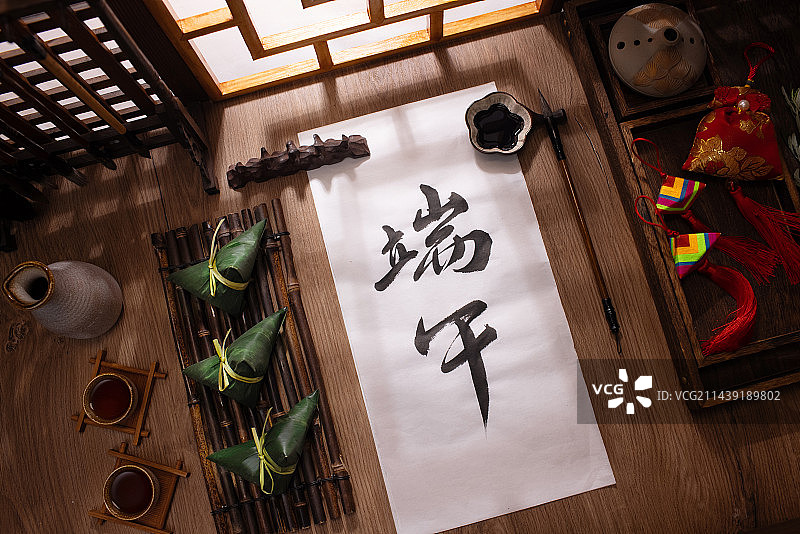 端
午
VCG® VCG211439189802